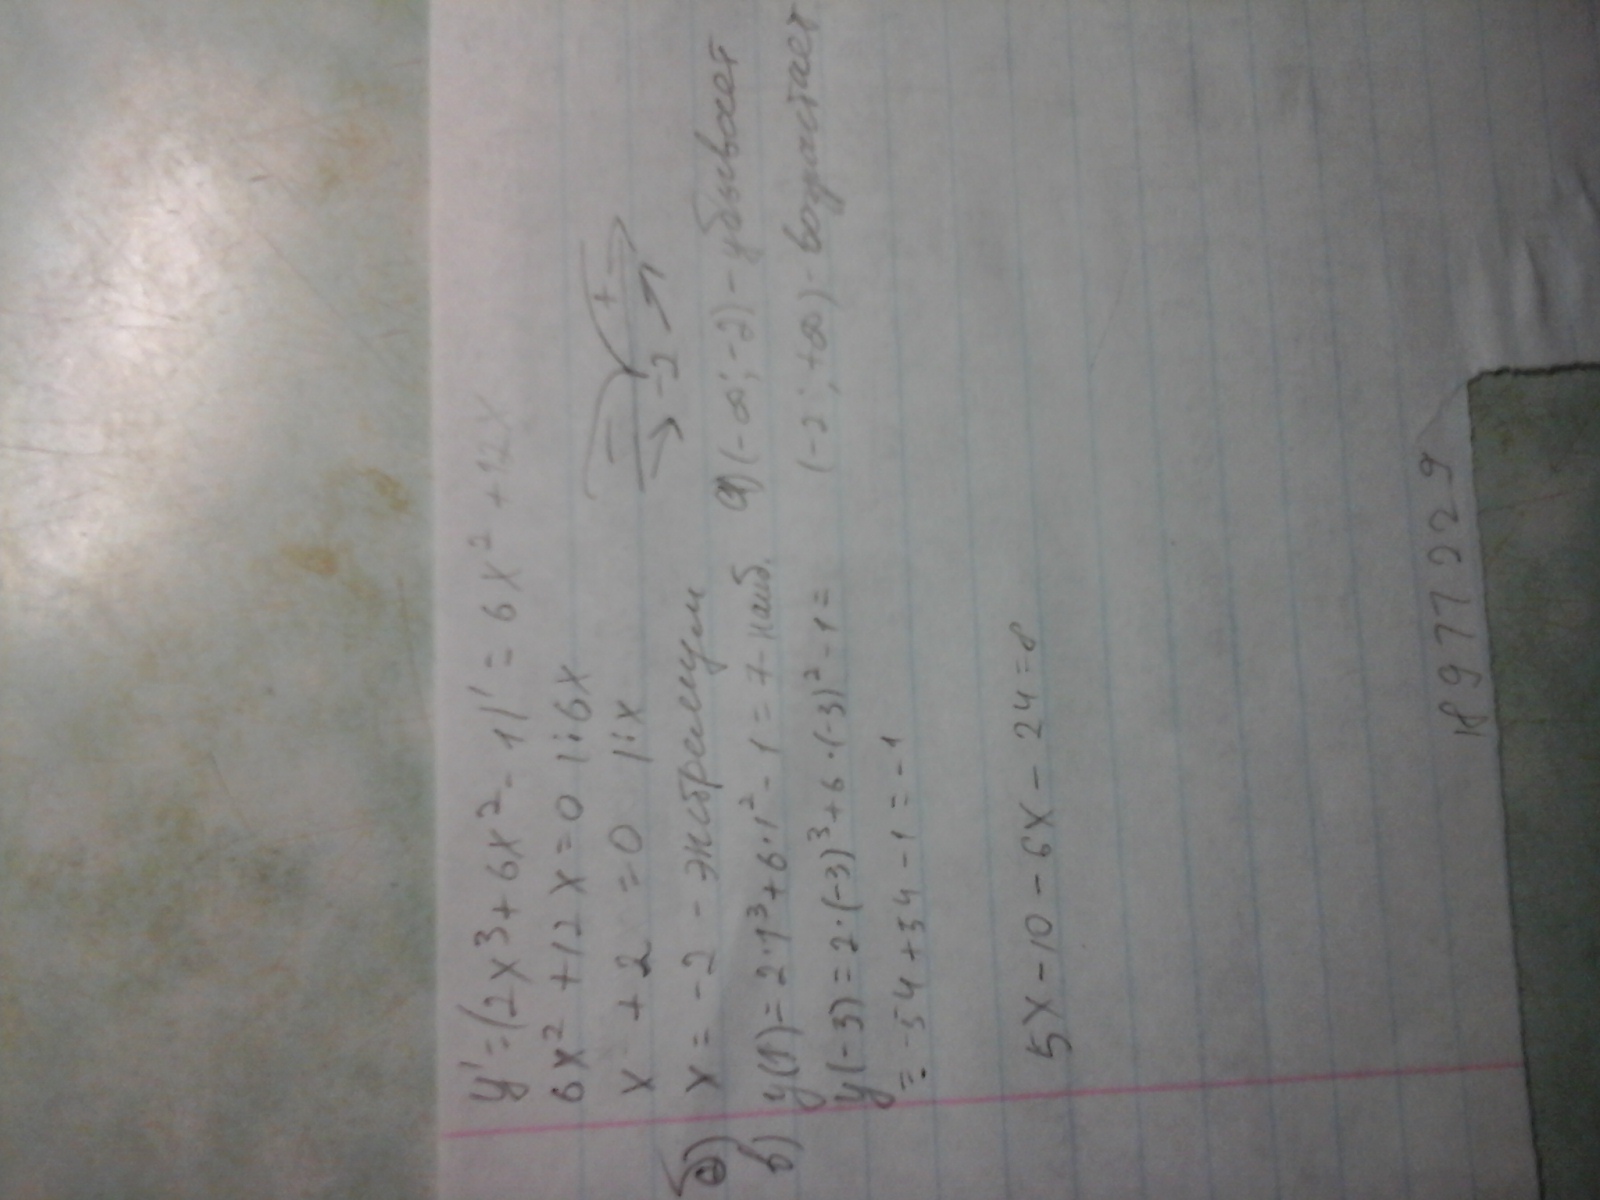 y' = (2x³ + 6x² - 1)' = 6x² + 12x
6x² + 12x = 0 |: 6x
x + 2 = 0 |: x
- +
-2
б) x = -2 - экстремум
а) (-∞; -2) - убывает
(-2; +∞) - возрастает
в) y(1) = 2·1³ + 6·1² - 1 = 7 - наиб.
y(-3) = 2·(-3)³ + 6·(-3)² - 1 =
= -54 + 54 - 1 = -1
5x - 10 - 6x - 24 = 8
18977229